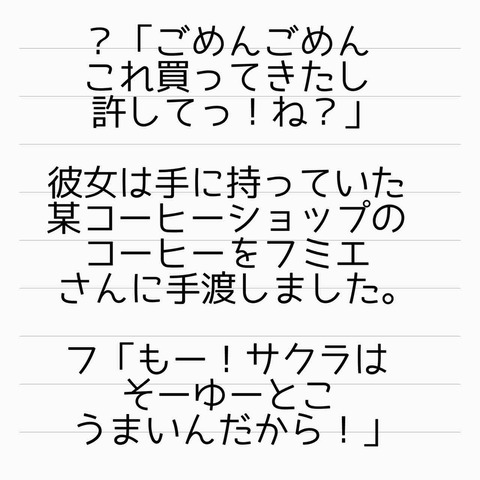 ？「ごめんごめん
これ買ってきたし
許してっ！ね？」
彼女は手に持っていた
某コーヒーショップの
コーヒーをフミエ
さんに手渡しました。
フ「もー！サクラは
そーゆーとこ
うまいんだから！」